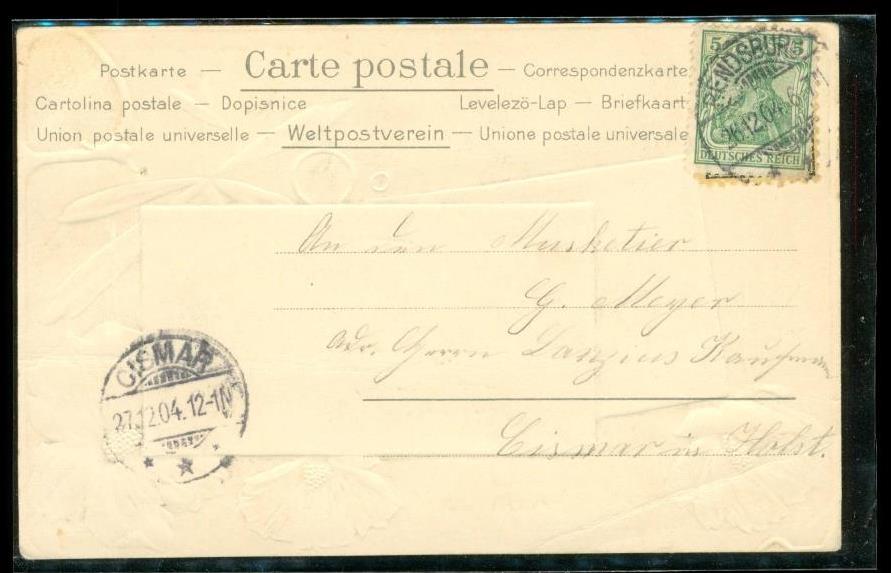 Postkarte — Carte postale — Correspondenzkarte
Cartolina postale — Dopisnice Levelezö-Lap — Briefkaart
Union postale universelle — Weltpostverein — Unione postale universale
5 5
DEUTSCHES REICH
RENDSBURG
26.12.04. 6
An den Musketier
G. Meyer
adr. Herrn Kaufmann
Cismar in Holst.
CISMAR
27.12.04.12-1N